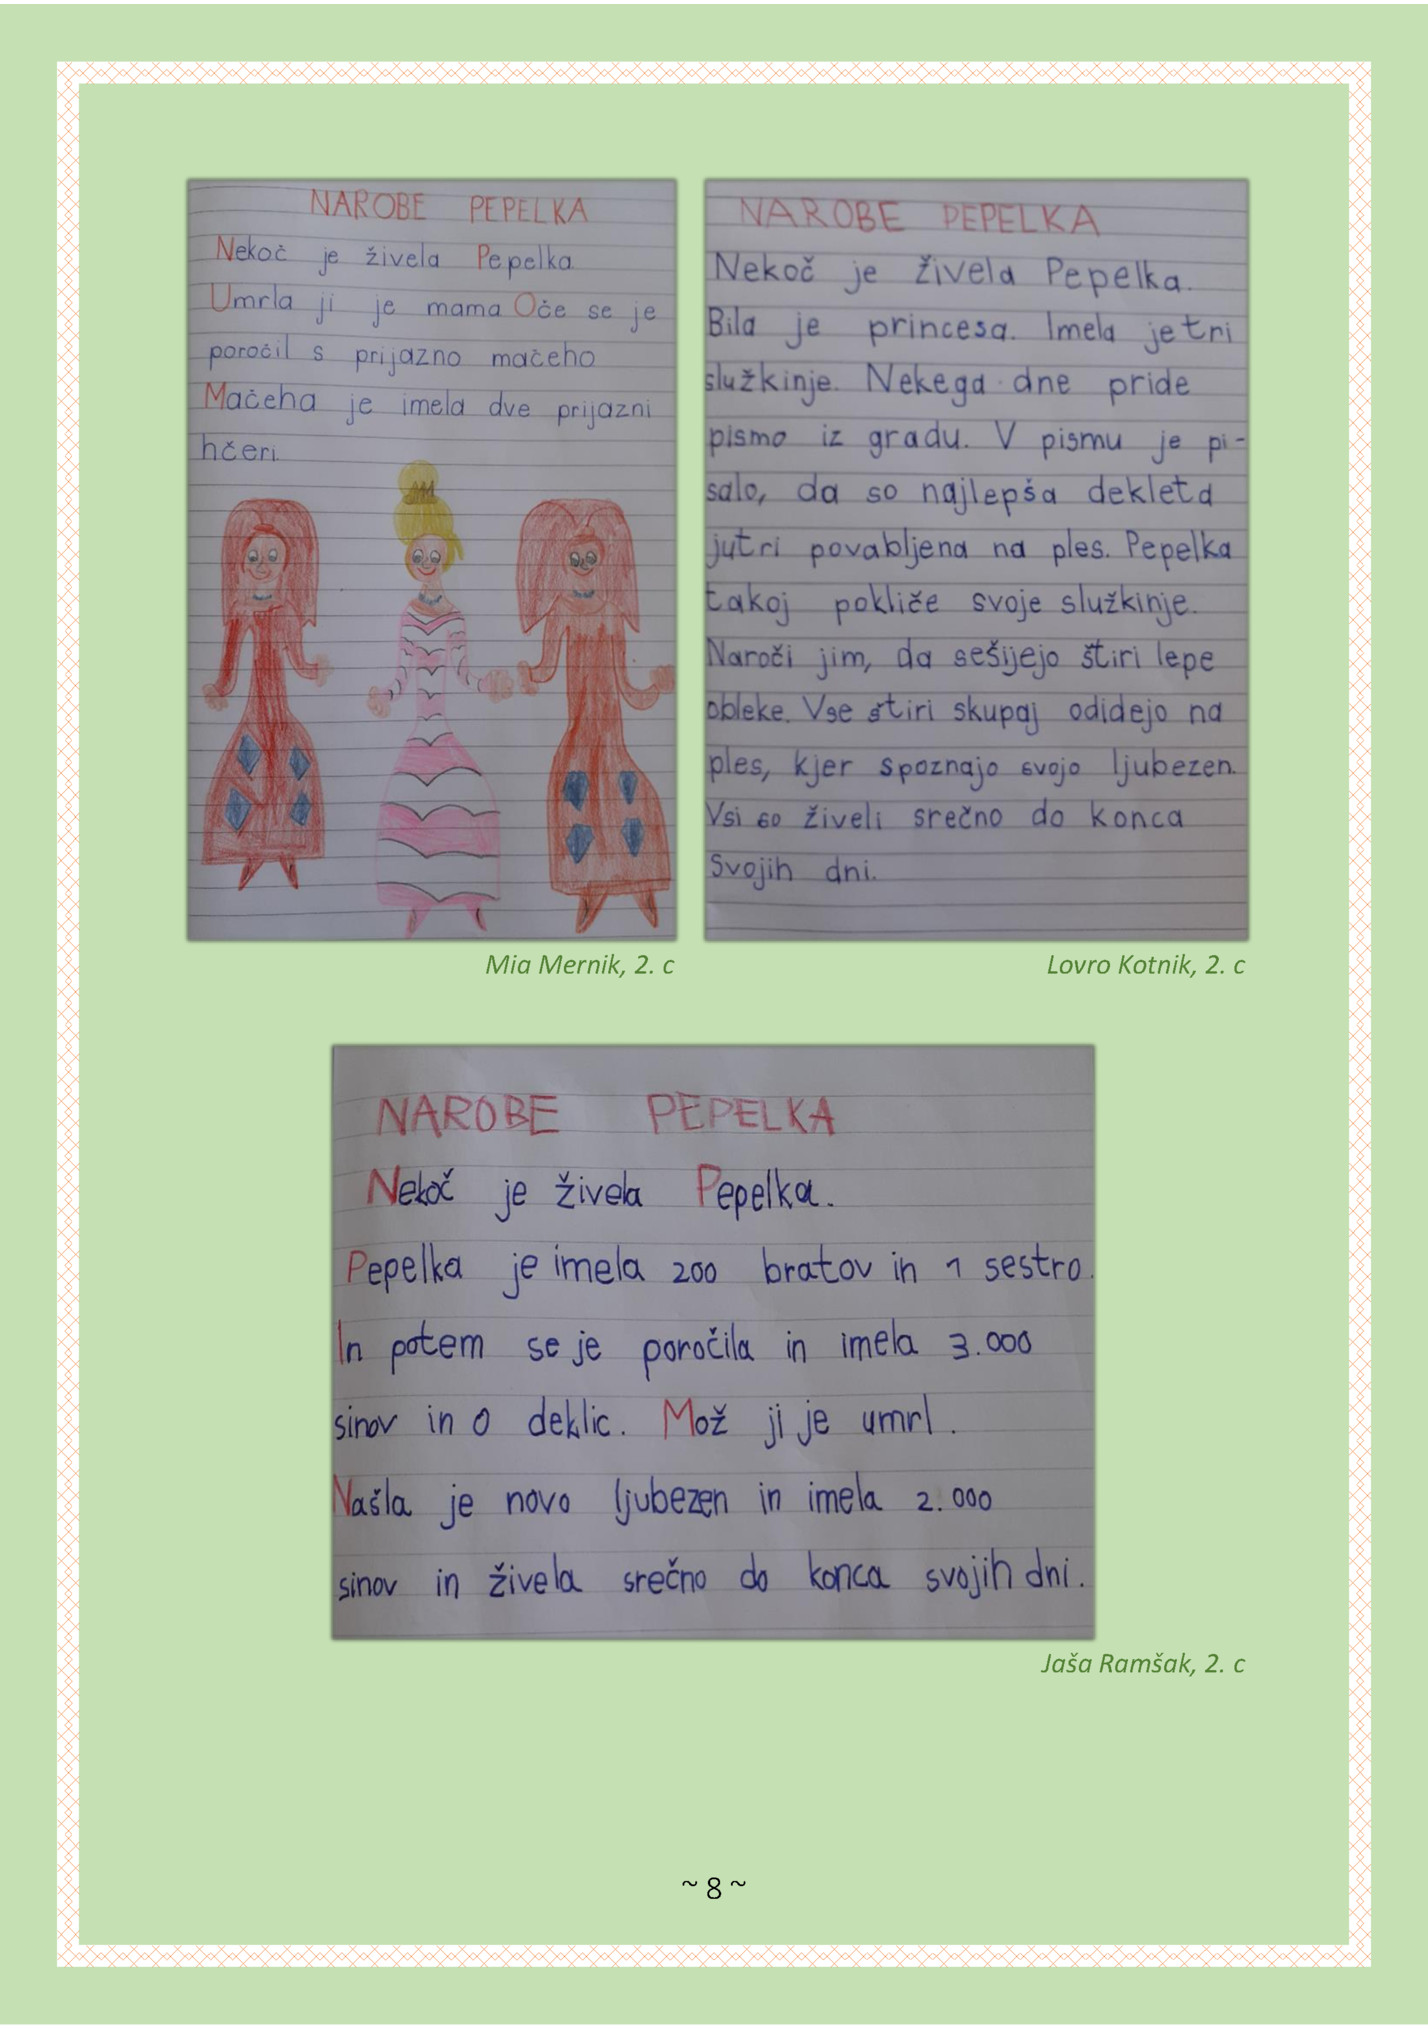 NAROBE PEPELKA
Nekoč je živela Pepelka
Umrla ji je mama Oče se je
poročil s prijazno mačeho
Mačeha je imela dve prijazni
hčeri.
Mia Mernik, 2. c
NAROBE PEPELKA
Nekoč je živela Pepelka.
Bila je princesa. Imela je tri
služkinje. Nekega dne pride
pismo iz gradu. V pismu je pi-
salo, da so najlepša dekleta
jutri povabljena na ples. Pepelka
takoj pokliče svoje služkinje.
Naroči jim, da sešijejo štiri lepe
obleke. Vse štiri skupaj odidejo na
ples, kjer spoznajo svojo ljubezen.
Vsi so živeli srečno do konca
Svojih dni.
Lovro Kotnik, 2. c
NAROBE PEPELKA
Nekoč je živela Pepelka.
Pepelka je imela 200 bratov in 1 sestro.
In potem se je poročila in imela 3.000
sinov in 0 deklic. Mož ji je umrl.
Našla je novo ljubezen in imela 2.000
sinov in živela srečno do konca svojih dni.
Jaša Ramšak, 2. c
~ 8 ~